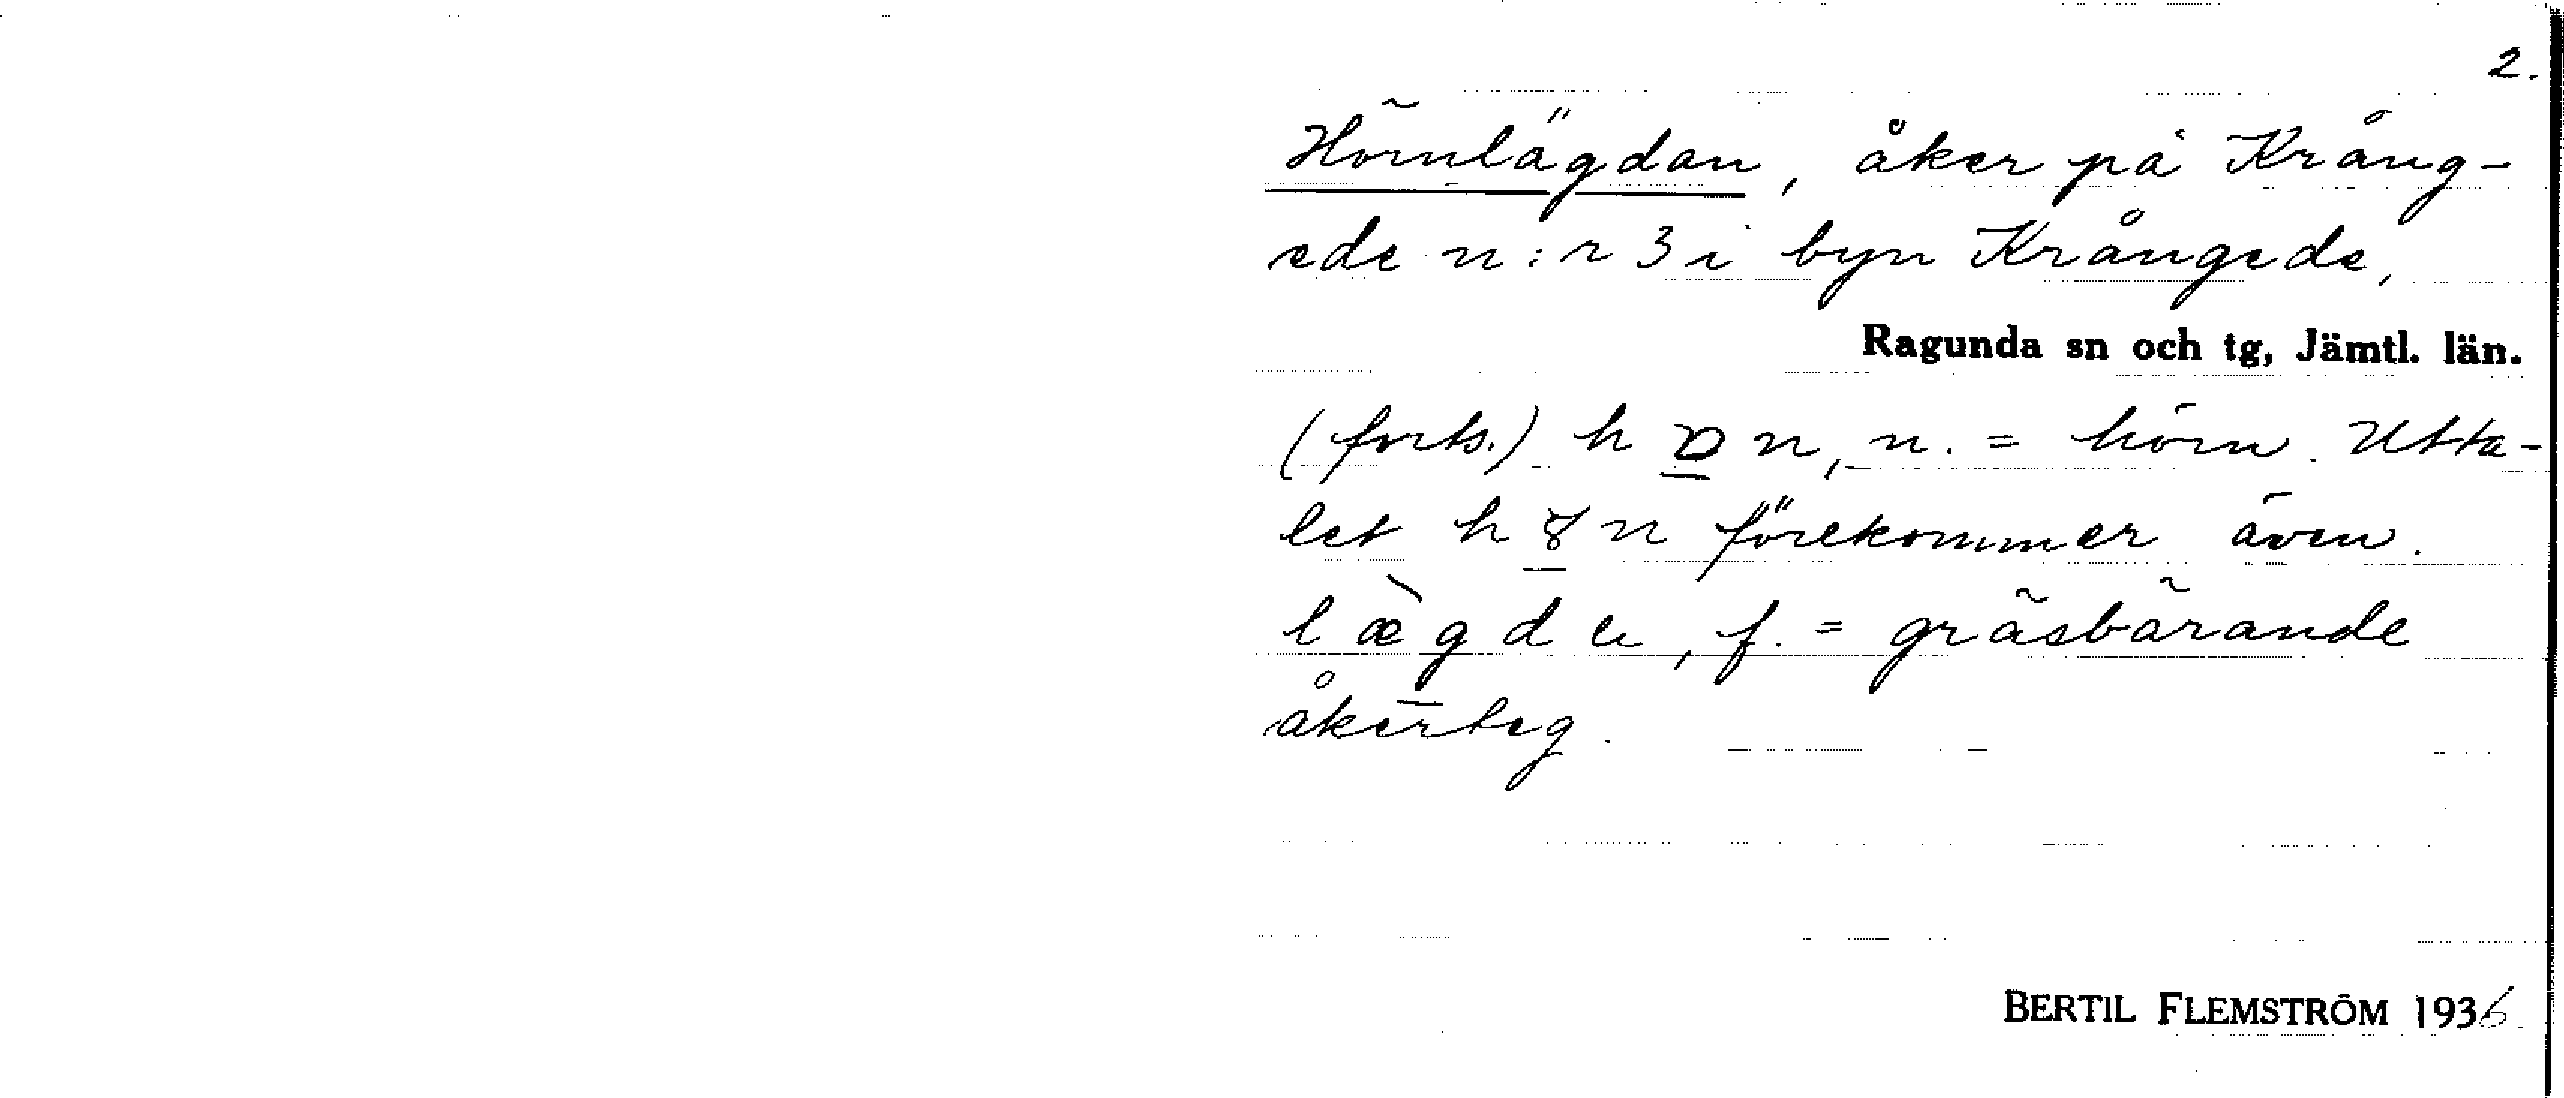 2.
Hörnlägdan, åker på Krång-
ede n:r 3 i byn Krångede,
Ragunda sn och tg, Jämtl. län.
(forts.) n. = hörn. Utta-
let förekommer även.
f. = gräsbärande
åkerteg.
BERTIL FLEMSTRÖM 1936